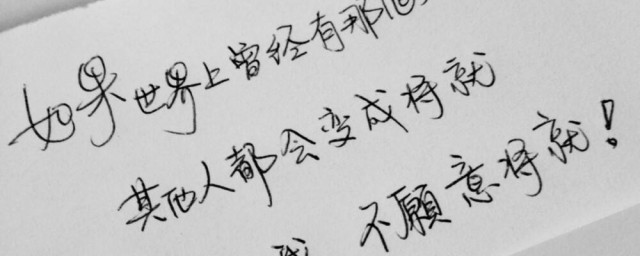 如果世界上曾经有那
其他人都会变成将就
不願意将就！